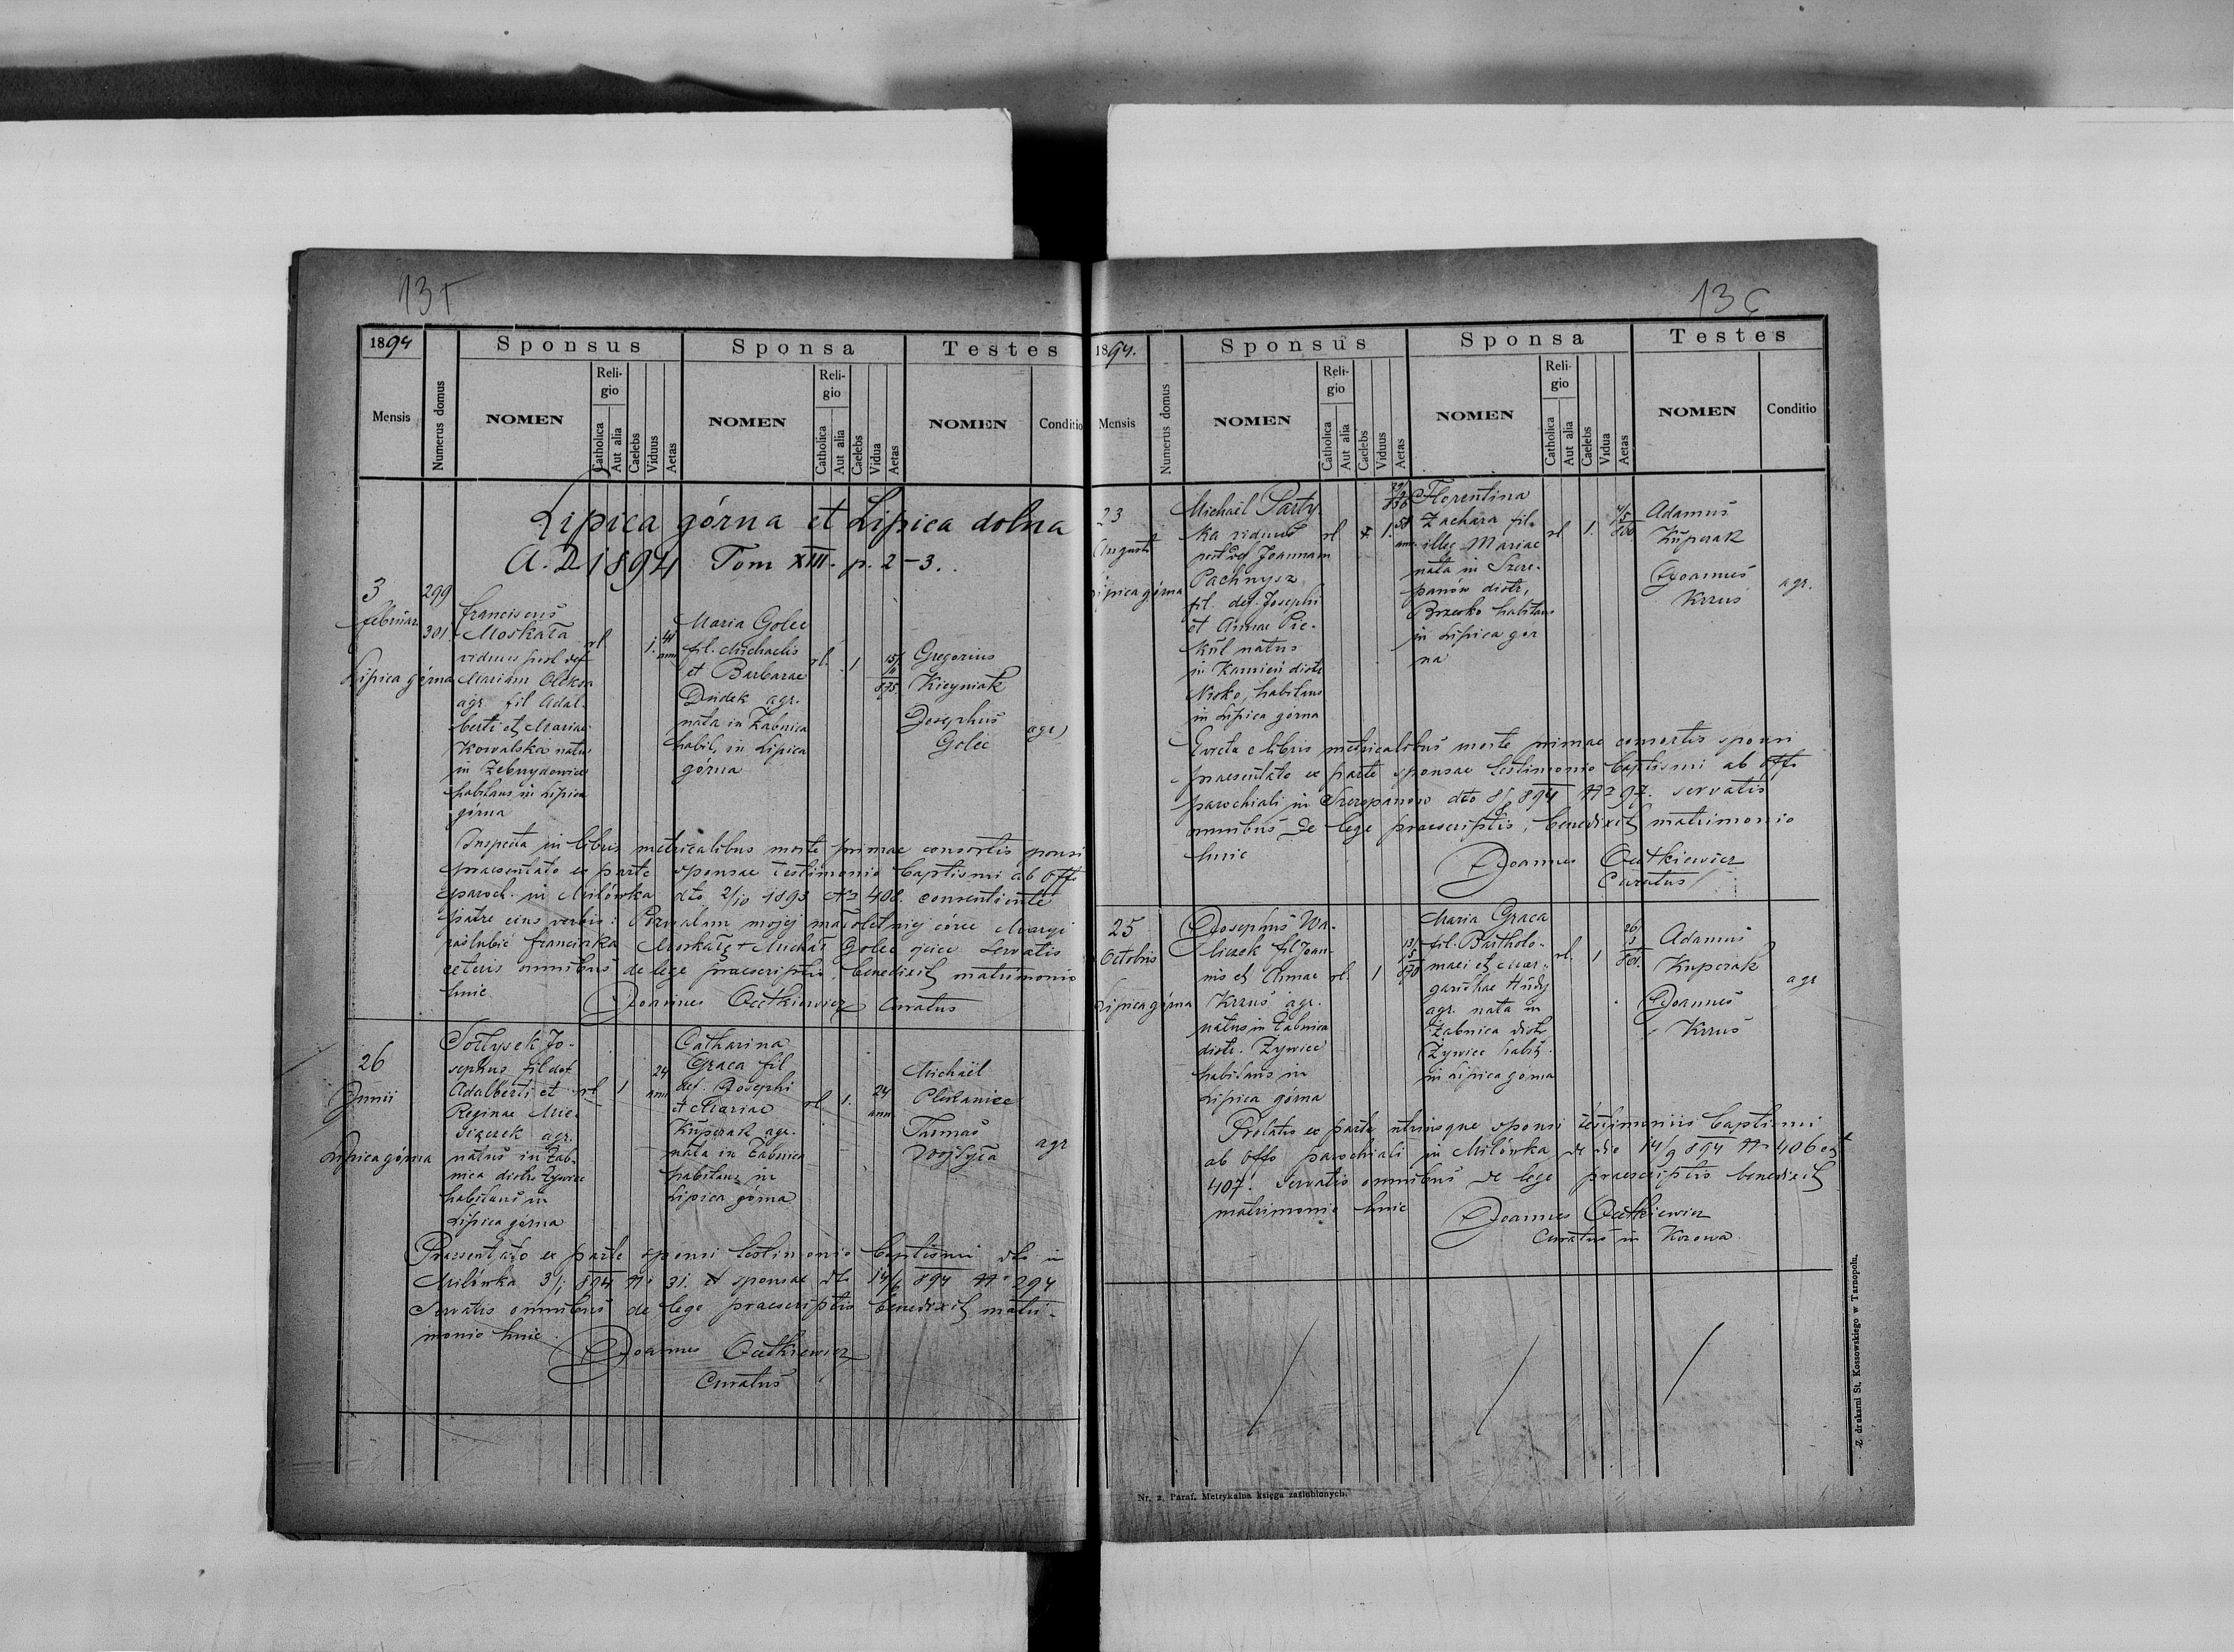 135
1894
Mensis
Numerus domus
Sponsus
NOMEN
Religio
Catholica
Aut alia
Caelebs
Viduus
Aetas
Sponsa
NOMEN
Religio
Catholica
Aut alia
Caelebs
Vidua
Aetas
Testes
NOMEN
Conditio
Lipica górna et Lipica dolna
A. D. 1894 Tom XIII. p. 2-3.
3
Februar
Lipica górna
299
301
Franciscus
Moskała
viduus post def
Mariam Oleksa
agr. fil Adal-
berti et Mariae
Kowalska natus
in Zebrzydowice
habitans in Lipica
górna
rl
1.
41
ann
Maria Golec
fil. Michaelis
et Barbarae
Dudek agr.
nata in Żabnica
habit. in Lipica
górna
rl.
1
15/
11
875
Gregorius
Josephus
Golec
agr
Inspecta in libris metricalibus morte primae consortis sponsi
praesentato ex parte sponsae testimonio baptismi ab offo
paroch. in Milówka dto 2/10 1893 No 408. consentiente
patre eius verbis: Pozwalam mojej małoletniej córce Maryi
zaślubić Franciszka Moskałę + Michał Golec ojciec servatis
ceteris omnibus de lege praescriptis, benedixit matrimonio
huic
Joannes Oectkiewicz Curatus
26
Junii
Lipica górna
Sołtysek Jo-
sephus fil def
Adalberti et
Reginae Mie-
sigczek agr.
natus in Żab-
nica distr Żywiec
habitans in
Lipica górna
rl
1
24
ann
Catharina
Graca fil
def. Josephi
et Mariae
Kuperak agr.
nata in Żabnica
habitans in
Lipica górna
rl
1.
24
ann
Michaël
Thomas
Wojtyła
agr
Praesentato ex parte sponsi testimonio baptismi dto in
Milówka 3/1 894 No 31. et sponsae dto 14/6 894 No 294
Servatis omnibus de lege praescriptis benedixit matri-
monio huic
Joannes Oectkiewicz
Curatus
136
1894.
Mensis
Numerus domus
Sponsus
NOMEN
Religio
Catholica
Aut alia
Caelebs
Viduus
Aetas
Sponsa
NOMEN
Religio
Catholica
Aut alia
Caelebs
Vidua
Aetas
Testes
NOMEN
Conditio
23
Augusti
Lipica górna
Michaël Party
ka viduus
post def Joannam
Pachnysz
fil. def. Josephi
et Annae Pie-
kul natus
in Kamień distr
Nisko, habitans
in Lipica górna
rl
1.
58
ann
Florentina
Zachara fil.
illeg Mariae
nata in Szcze-
panów distr,
Brzesko habitans
in Lipica gór
na
rl
1.
Adamus
Kuperak
Joannes
Krzus
agr.
Evecta e libris metricalibus morte primae consortis sponsi
praesentato ex parte sponsae testimonio baptismi ab offo
parochiali in Szczepanow dto 8/8 894 No 97. servatis
omnibus de lege praescriptis, benedixit matrimonio
huic
Joannes Oectkiewicz
Curatus
25
Octobris
Lipica górna
Josephus Wa-
liczek fil Joan-
nis et Annae
Krzus agr.
natus in Żabnica
distr. Żywiec
habitans in
Lipica górna
rl.
1
13/
5
870
Maria Graca
fil. Bartholo-
maei et Mar-
garithae Hudy
agr. nata in
Żabnica distr
Żywiec habit.
in Lipica górna
rl.
1
Adamus
Kuperak
Joannes
Krzus
agr
Prolatis ex parte utriusque sponsi testimoniis baptismi
ab offo parochiali in Milówka de dto 14/9 894 No 406 et
407. Servatis omnibus de lege praescriptis benedixit
matrimonio huic
Joannes Oectkiewicz
Curatus in Kozowa.
Nr. 2. Paraf. Metrykalna księga zaślubionych.
Z drukarni St. Kossowskiego w Tarnopolu.